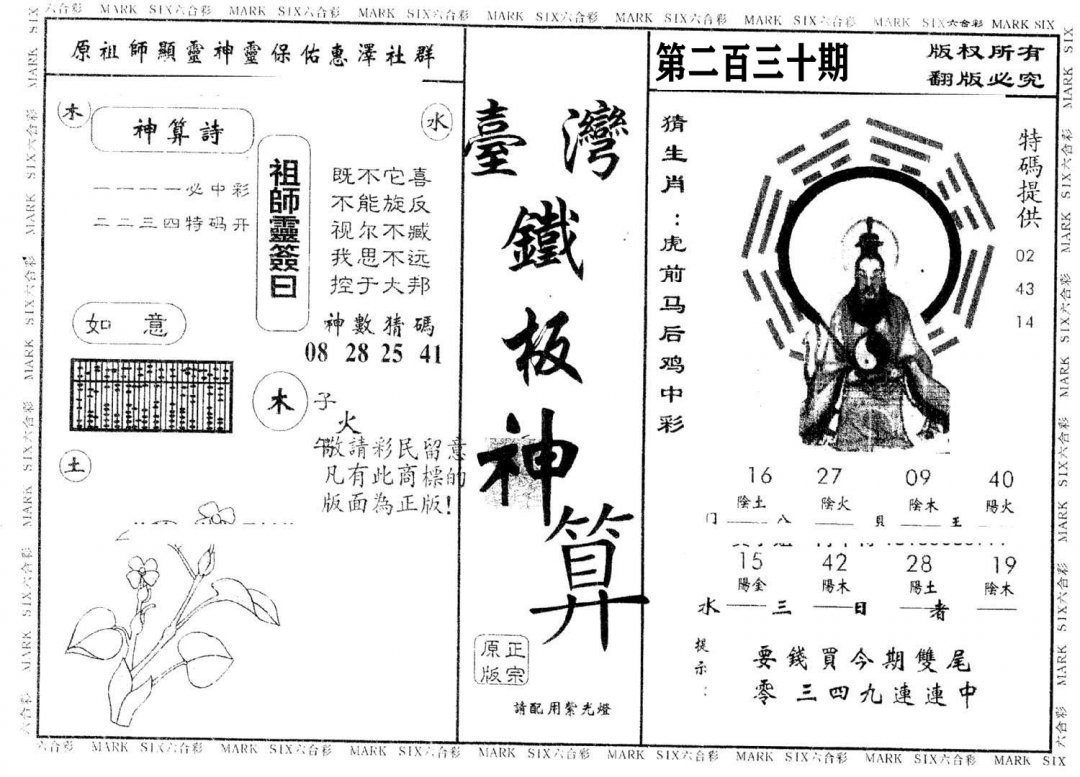 MARK SIX六合彩 MARK SIX六合彩 MARK SIX六合彩 MARK SIX六合彩 MARK SIX六合彩 MARK SIX六合彩 MARK SIX六合彩 MARK SIX
原祖師顯靈神靈保佑惠澤社群
木
神算詩
水
一一一一必中彩
二二三四特码开
祖師靈簽曰
既不它喜
不能旋反
视尔不臧
我思不远
控于大邦
神數猜碼
08 28 25 41
如意
木
子
火
午
敬請彩民留意
凡有此商標的
版面為正版!
土
臺灣
鐵
板
神
算
正宗
原版
請配用紫光燈
第二百三十期
版权所有
翻版必究
猜生肖:虎前马后鸡中彩
特碼提供
02
43
14
16 27 09 40
陰土 陰火 陰木 陽火
门 八 貝 王
15 42 28 19
陽金 陽木 陽土 陰木
水 三 日 者
提示:
要錢買今期雙尾
零三四九連連中
六合彩 MARK SIX六合彩 MARK SIX六合彩 MARK SIX六合彩 MARK SIX六合彩 MARK SIX六合彩 MARK SIX六合彩 MARK SIX六合彩 MARK SIX